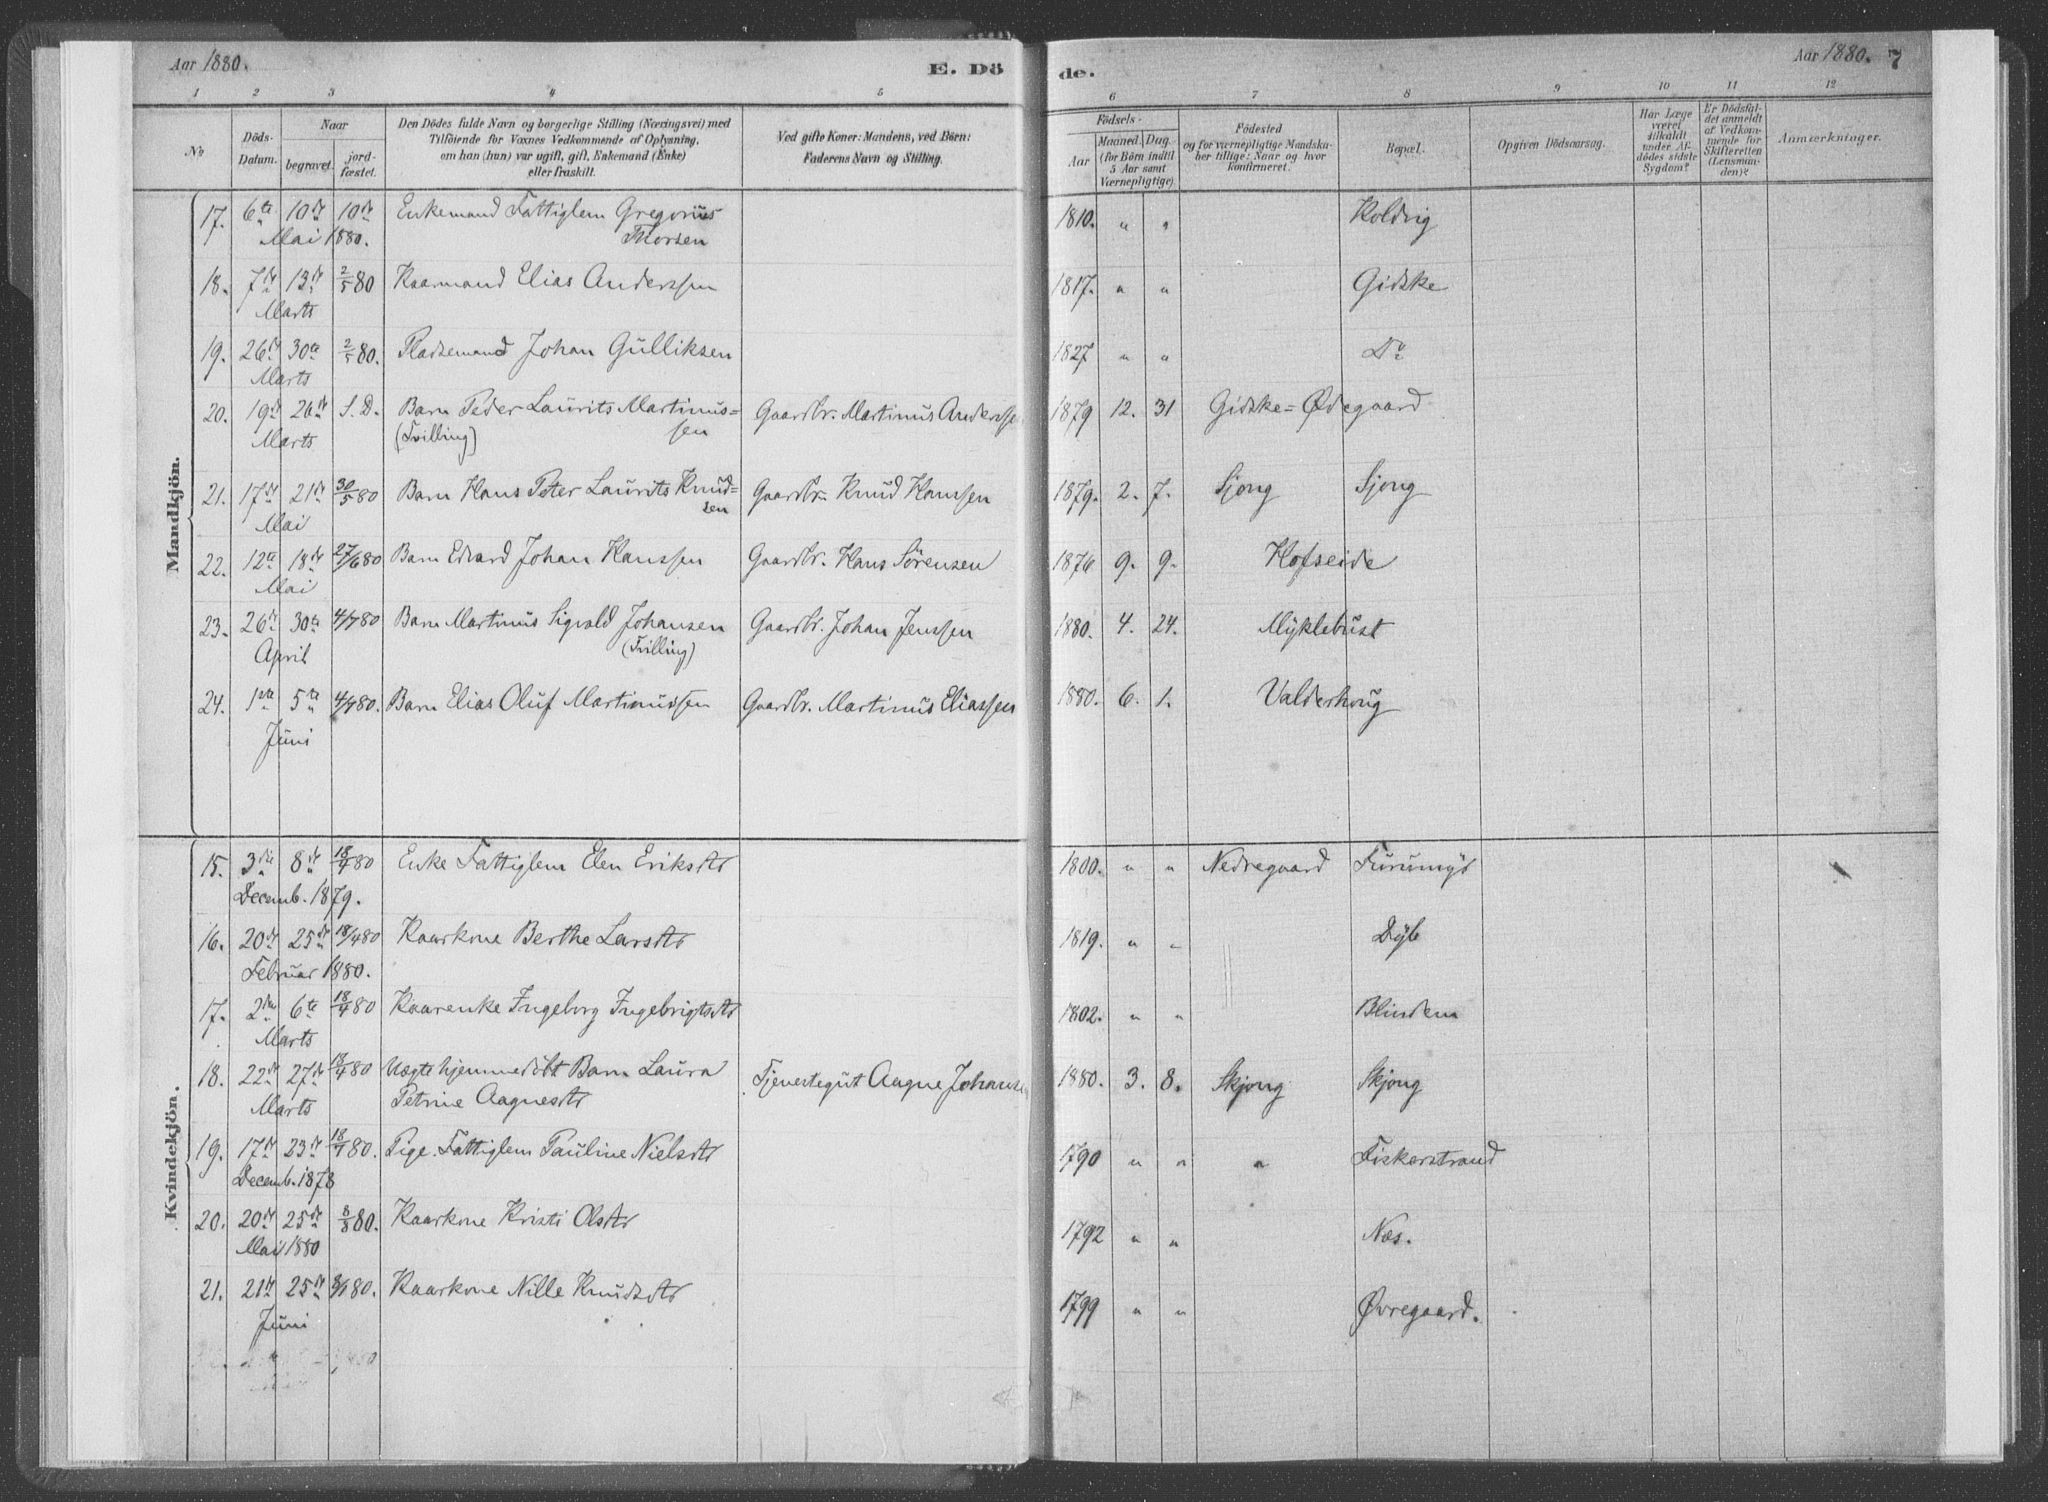 Aar 1880.
E. Dö
de.
Aar 1880. 7
1 2 3 4 5 6 7 8 9 10 11 12
No
Döds-
Datum.
Naar
begravet.
jord-
fæstet.
Den Dödes fulde Navn og borgerlige Stilling (Næringsvei) med
Tilföiende for Voxnes Vedkommende af Oplysning,
om han (hun) var ugift, gift, Enkemand (Enke)
eller fraskilt.
Ved gifte Koner: Mandens, ved Börn:
Faderens Navn og Stilling.
Födsels-
Aar
Maaned. Dag.
(for Börn indtil
5 Aar samt
Værnepligtige)
Födested
og for værnepligtige Mandska-
ber tillige: Naar og hvor
konfirmeret.
Bopæl.
Opgiven Dödsaarsag.
Har Læge
været
tilkaldt
under Af-
dödes sidste
Sygdom?
Er Dödsfal-
det anmeldt
af Vedkom-
mende for
Skifteretten
(Lensman-
den)?
Anmærkninger.
Mandkjön.
17. 6te 10de 10de Enkemand Fattiglem Gregorius 1810. " " Koldvig
Mai 1880. Thorsen
18. 7de 13de 2/5 80 Kaarmand Elias Anderssen 1817. " " Gidske
Marts
19. 26de 30te 2/5 80. Pladsemand Johan Gülliksen 1827 " " Do
Marts
20. 19de 26de S.D. Barn Peder Laurits Martinus= Gaardbr. Martinus Anderssen 1879 12. 31 Gidske=Ødegaard
Marts (Tvilling) sen
21. 17de 21de 30/5 80 Barn Hans Peter Laurits Knud= Gaardbr. Knud Hanssen 1879. 2. 7. Sjong Sjong
Mai sen
22. 12te 18de 27/6 80 Barn Edvard Johan Hanssen Gaardbr. Hans Sörensen 1876 9. 9. Hofseide
Mai
23. 26de 30te 4/7 80 Barn Martinus Sigvald Johansen Gaardbr. Johan Jenssen 1880. 4. 24. Myklebust
April (Tvilling)
24. 1ste 5te 4/7 80. Barn Elias Oluf Martinussen Gaardbr. Martinus Eliassen 1880. 6. 1. Valderhoug
Juni
Kvindekjön.
15. 3die 8de 18/4 80 Enke Fattiglem Elen Eriksdtr 1800. " " Nedregaard Furumyr
Decemb. 1879.
16. 20de 25de 18/4 80 Kaarkone Berthe Larsdtr 1819. " " Dyb
Februar 1880.
17. 2den 6te 18/4 80 Kaarenke Ingeborg Ingebrigtsdtr 1802. " " Blindem
Marts
18. 22de 27de 18/4 80 Uægte hjemmedöbt Barn Laura Tjenestegut Aagne Johansen 1880. 3. 8. Skjong Skjong
Marts Petrine Aagnesdtr
19. 17de 23de 18/4 80. Pige. Fattiglem Pauline Nielsdtr 1790 " " " Fiskerstrand
Decemb. 1878
20. 20de 25de 8/8 80. Kaarkone Kristi Olsdtr 1792 " " Næs.
Mai 1880
21. 21de 25de 8/8 80. Kaarkone Nille Knudsdtr 1799 " " Øvregaard.
Juni